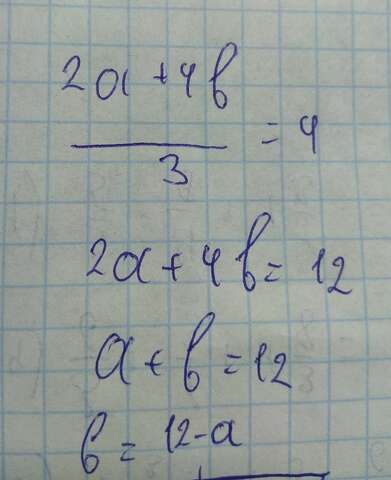 2a + 4b
/ 3 = 4
2a + 4b = 12
a + b = 12
b = 12 - a